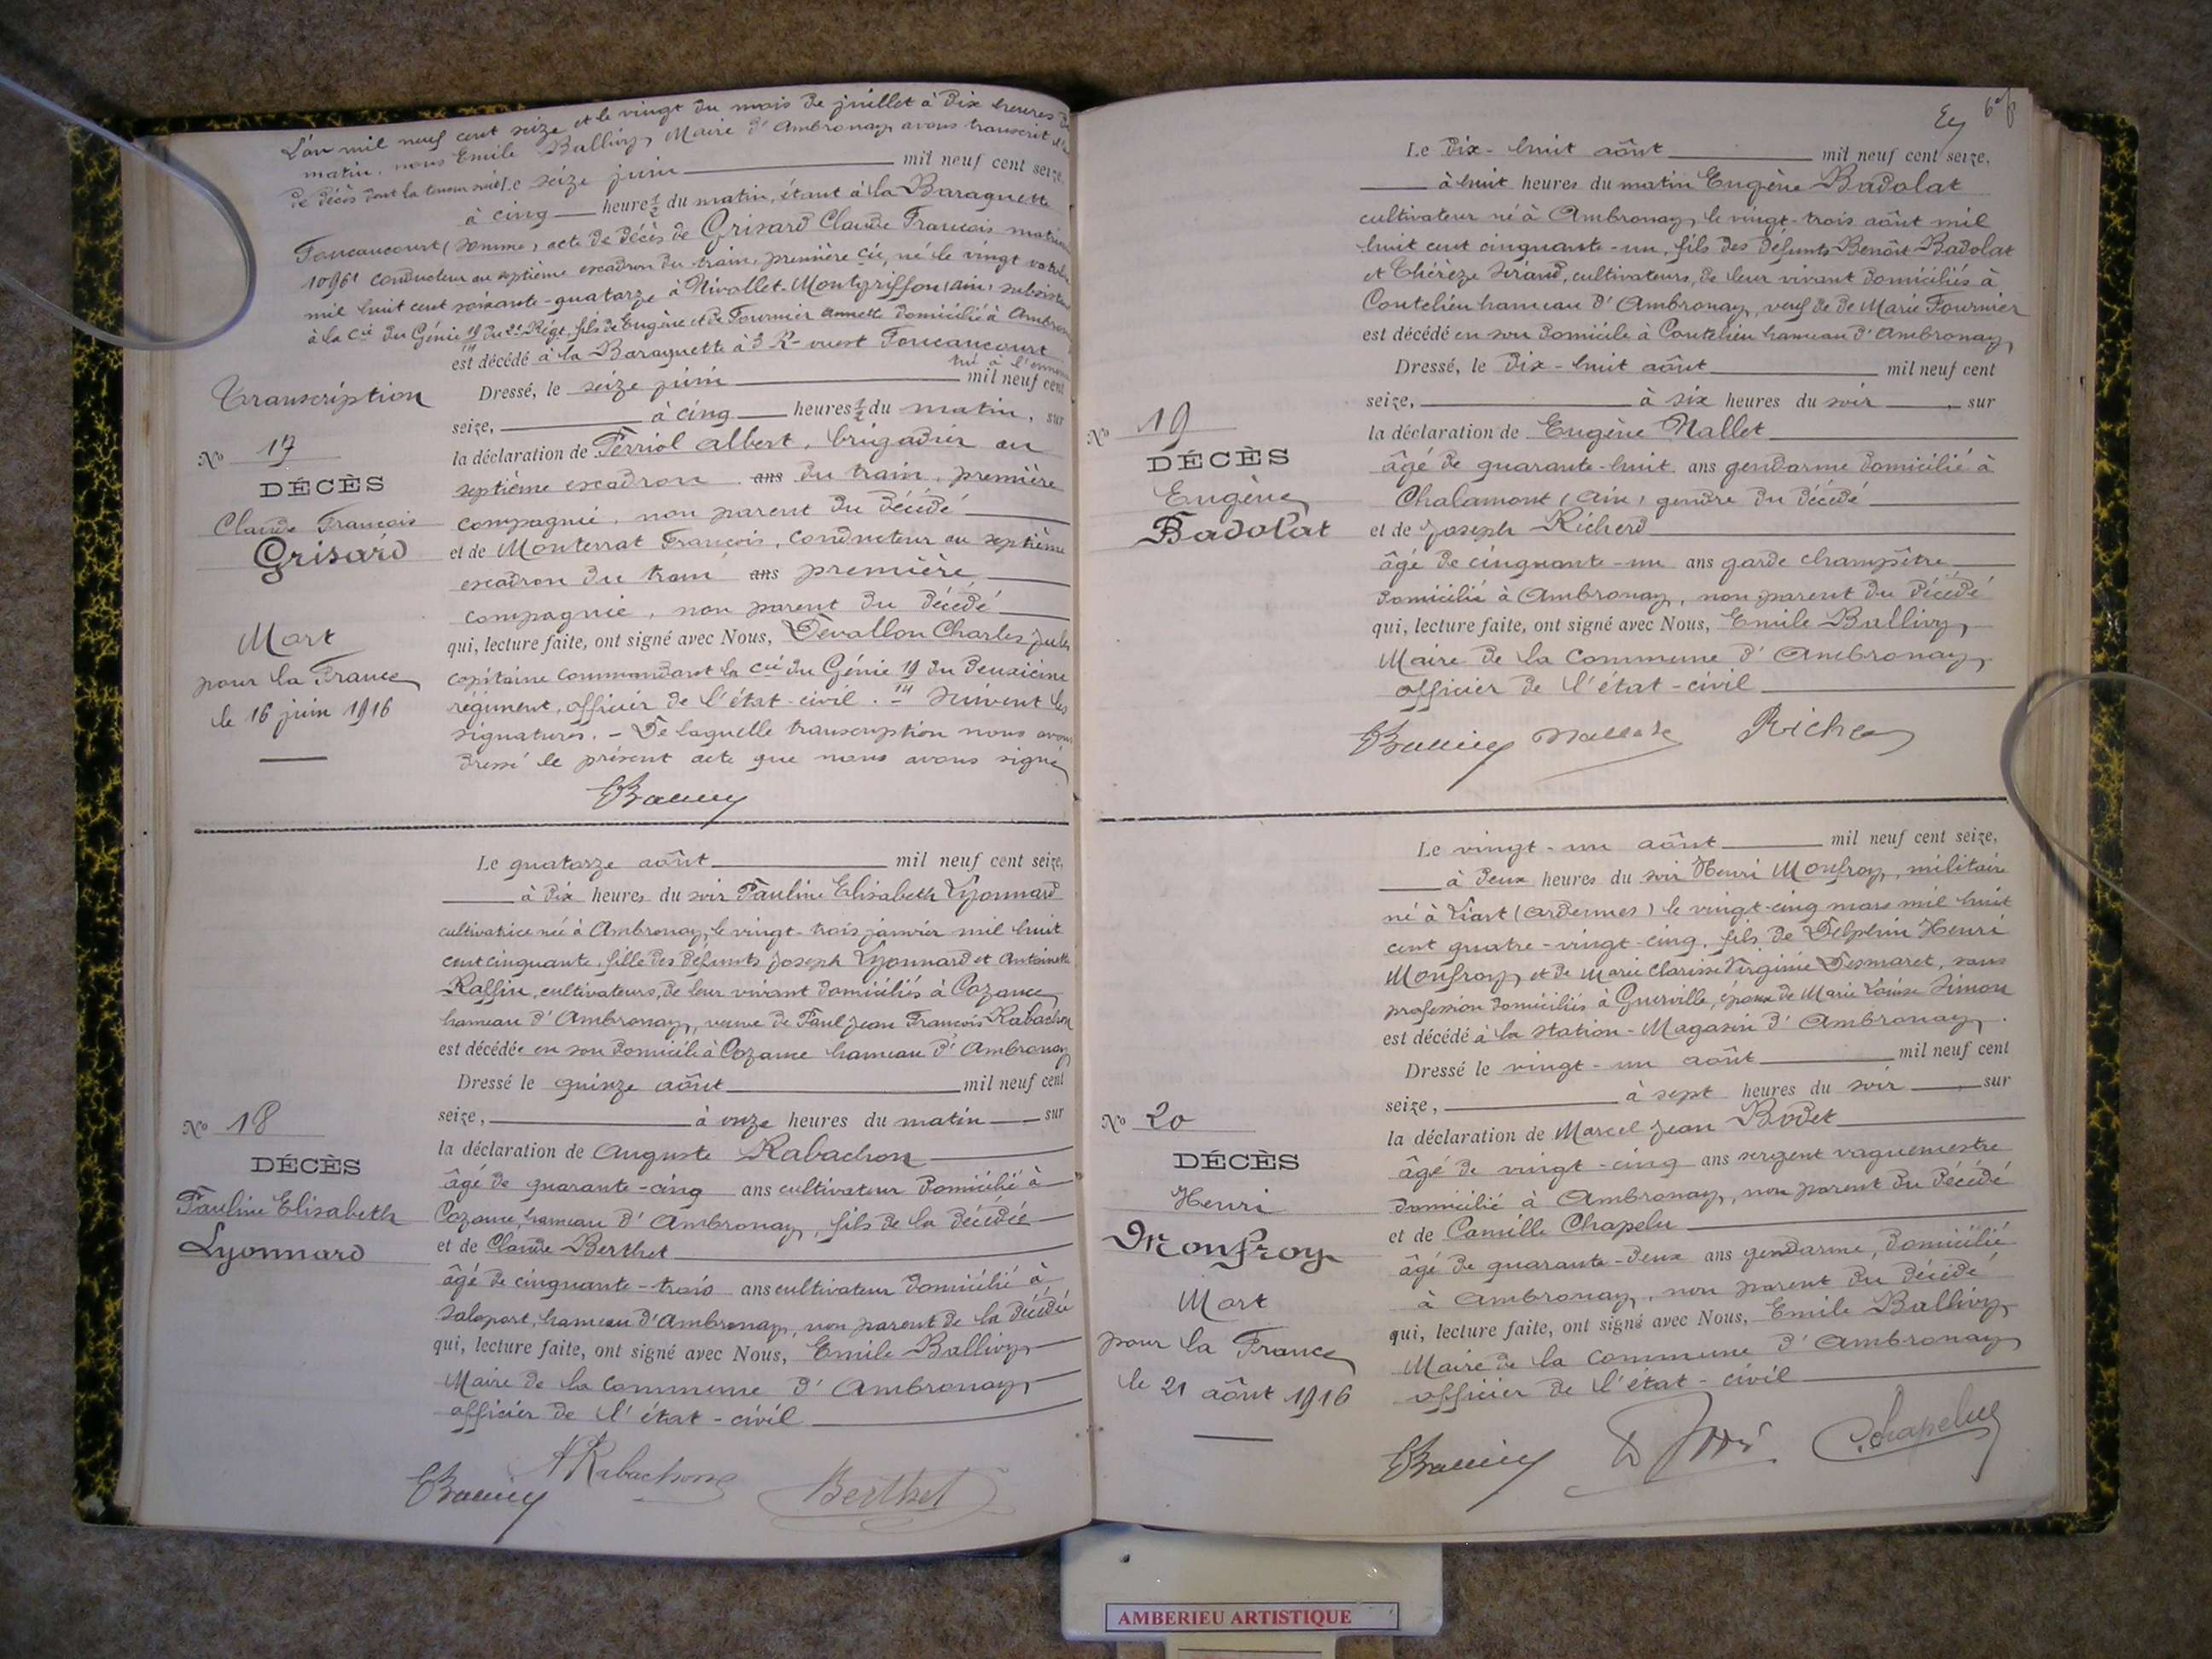 L'an mil neuf cent seize et le vingt du mois de juillet à dix heures du
matin, nous Emile Ballivy, Maire d'Ambronay avons transcrit
de décès dont la teneur suit Le seize juin mil neuf cent seize,
à cinq heures ½ du matin, étant à la Baraquette
Foucaucourt (Somme) acte de décès de Grisard Claude François
10961 conducteur au septième escadron du train, première Cie, né le vingt
mil huit cent soixante-quatorze à Nivollet-Montgriffon (Ain)
à la Cie du Génie 19/14 du 2e Régt, fils de Eugène et de Fournier Annette domicilié à
est décédé à la Baraquette à 3 K- ouest Foucaucourt
tué à l'ennemi
Transcription
Dressé, le seize juin mil neuf cent
seize, à cinq heures ½ du matin, sur
la déclaration de Ferriol Albert, brigadier au
septième escadron ans du train, première
compagnie, non parent du décédé
et de Monterrat François, conducteur au septième
escadron du train ans première
compagnie, non parent du décédé
qui, lecture faite, ont signé avec Nous, Devallon Charles Jules
capitaine commandant la Cie du Génie 19/14 du deuxième
régiment, officier de l'état-civil. - Suivent les
signatures. - De laquelle transcription nous avons
dressé le présent acte que nous avons signé
No 17
DÉCÈS
Claude François
Grisard
Mort
pour la France
le 16 juin 1916
Le quatorze août mil neuf cent seize,
à dix heures du soir Pauline Elisabeth Lyonnard
cultivatrice née à Ambronay, le vingt-trois janvier mil huit
cent cinquante, fille des défunts Joseph Lyonnard et Antoinette
Raffin, cultivateurs, de leur vivant domiciliés à Cozance
hameau d'Ambronay, veuve de Paul Jean François Rabachon
est décédée en son domicile à Cozance hameau d'Ambronay
Dressé le quinze août mil neuf cent
seize, à onze heures du matin sur
la déclaration de Auguste Rabachon
âgé de quarante-cinq ans cultivateur domicilié à
Cozance, hameau d'Ambronay, fils de la décédée
et de Claude Berthet
âgé de cinquante-trois ans cultivateur domicilié à
Salaport, hameau d'Ambronay, non parent de la décédée
qui, lecture faite, ont signé avec Nous, Emile Ballivy
Maire de la Commune d'Ambronay
officier de l'état-civil
No 18
DÉCÈS
Pauline Elisabeth
Lyonnard
Berthet
Le dix-huit août mil neuf cent seize,
à huit heures du matin Eugène Badolat
cultivateur né à Ambronay, le vingt-trois août mil
huit cent cinquante-un, fils des défunts Benoît Badolat
et Thérèze Sirand, cultivateurs, de leur vivant domiciliés à
Coutelieu hameau d'Ambronay, veuf de de Marie Fournier
est décédé en son domicile à Coutelieu hameau d'Ambronay
Dressé, le dix-huit août mil neuf cent
seize, à six heures du soir sur
la déclaration de Eugène Nallet
âgé de quarante-huit ans gendarme domicilié à
Chalamont (Ain) gendre du décédé
et de Joseph Richerd
âgé de cinquante-un ans garde champêtre
domicilié à Ambronay, non parent du décédé
qui, lecture faite, ont signé avec Nous, Emile Ballivy,
Maire de la Commune d'Ambronay,
officier de l'état-civil
No 19
DÉCÈS
Eugène
Badolat
Le vingt-un août mil neuf cent seize,
à deux heures du soir Henri Monfroy, militaire
né à Liart (Ardennes) le vingt-cinq mars mil huit
cent quatre-vingt-cinq, fils de Delphin Henri
Monfroy et de Marie Clarisse Virginie Desmaret, sans
profession domiciliés à Guerville, époux de Marie Louise Simon
est décédé à la Station-Magasin d'Ambronay.
Dressé le vingt-un août mil neuf cent
seize, à sept heures du soir sur
la déclaration de Marcel Jean Bodet
âgé de vingt-cinq ans sergent vaguemestre
domicilié à Ambronay, non parent du décédé
et de Camille Chapelu
âgé de quarante-deux ans gendarme, domicilié
à Ambronay, non parent du décédé
qui, lecture faite, ont signé avec Nous, Emile Ballivy,
Maire de la Commune d'Ambronay
officier de l'état-civil
No 20
DÉCÈS
Henri
Monfroy
Mort
pour la France
le 21 août 1916
AMBERIEU ARTISTIQUE